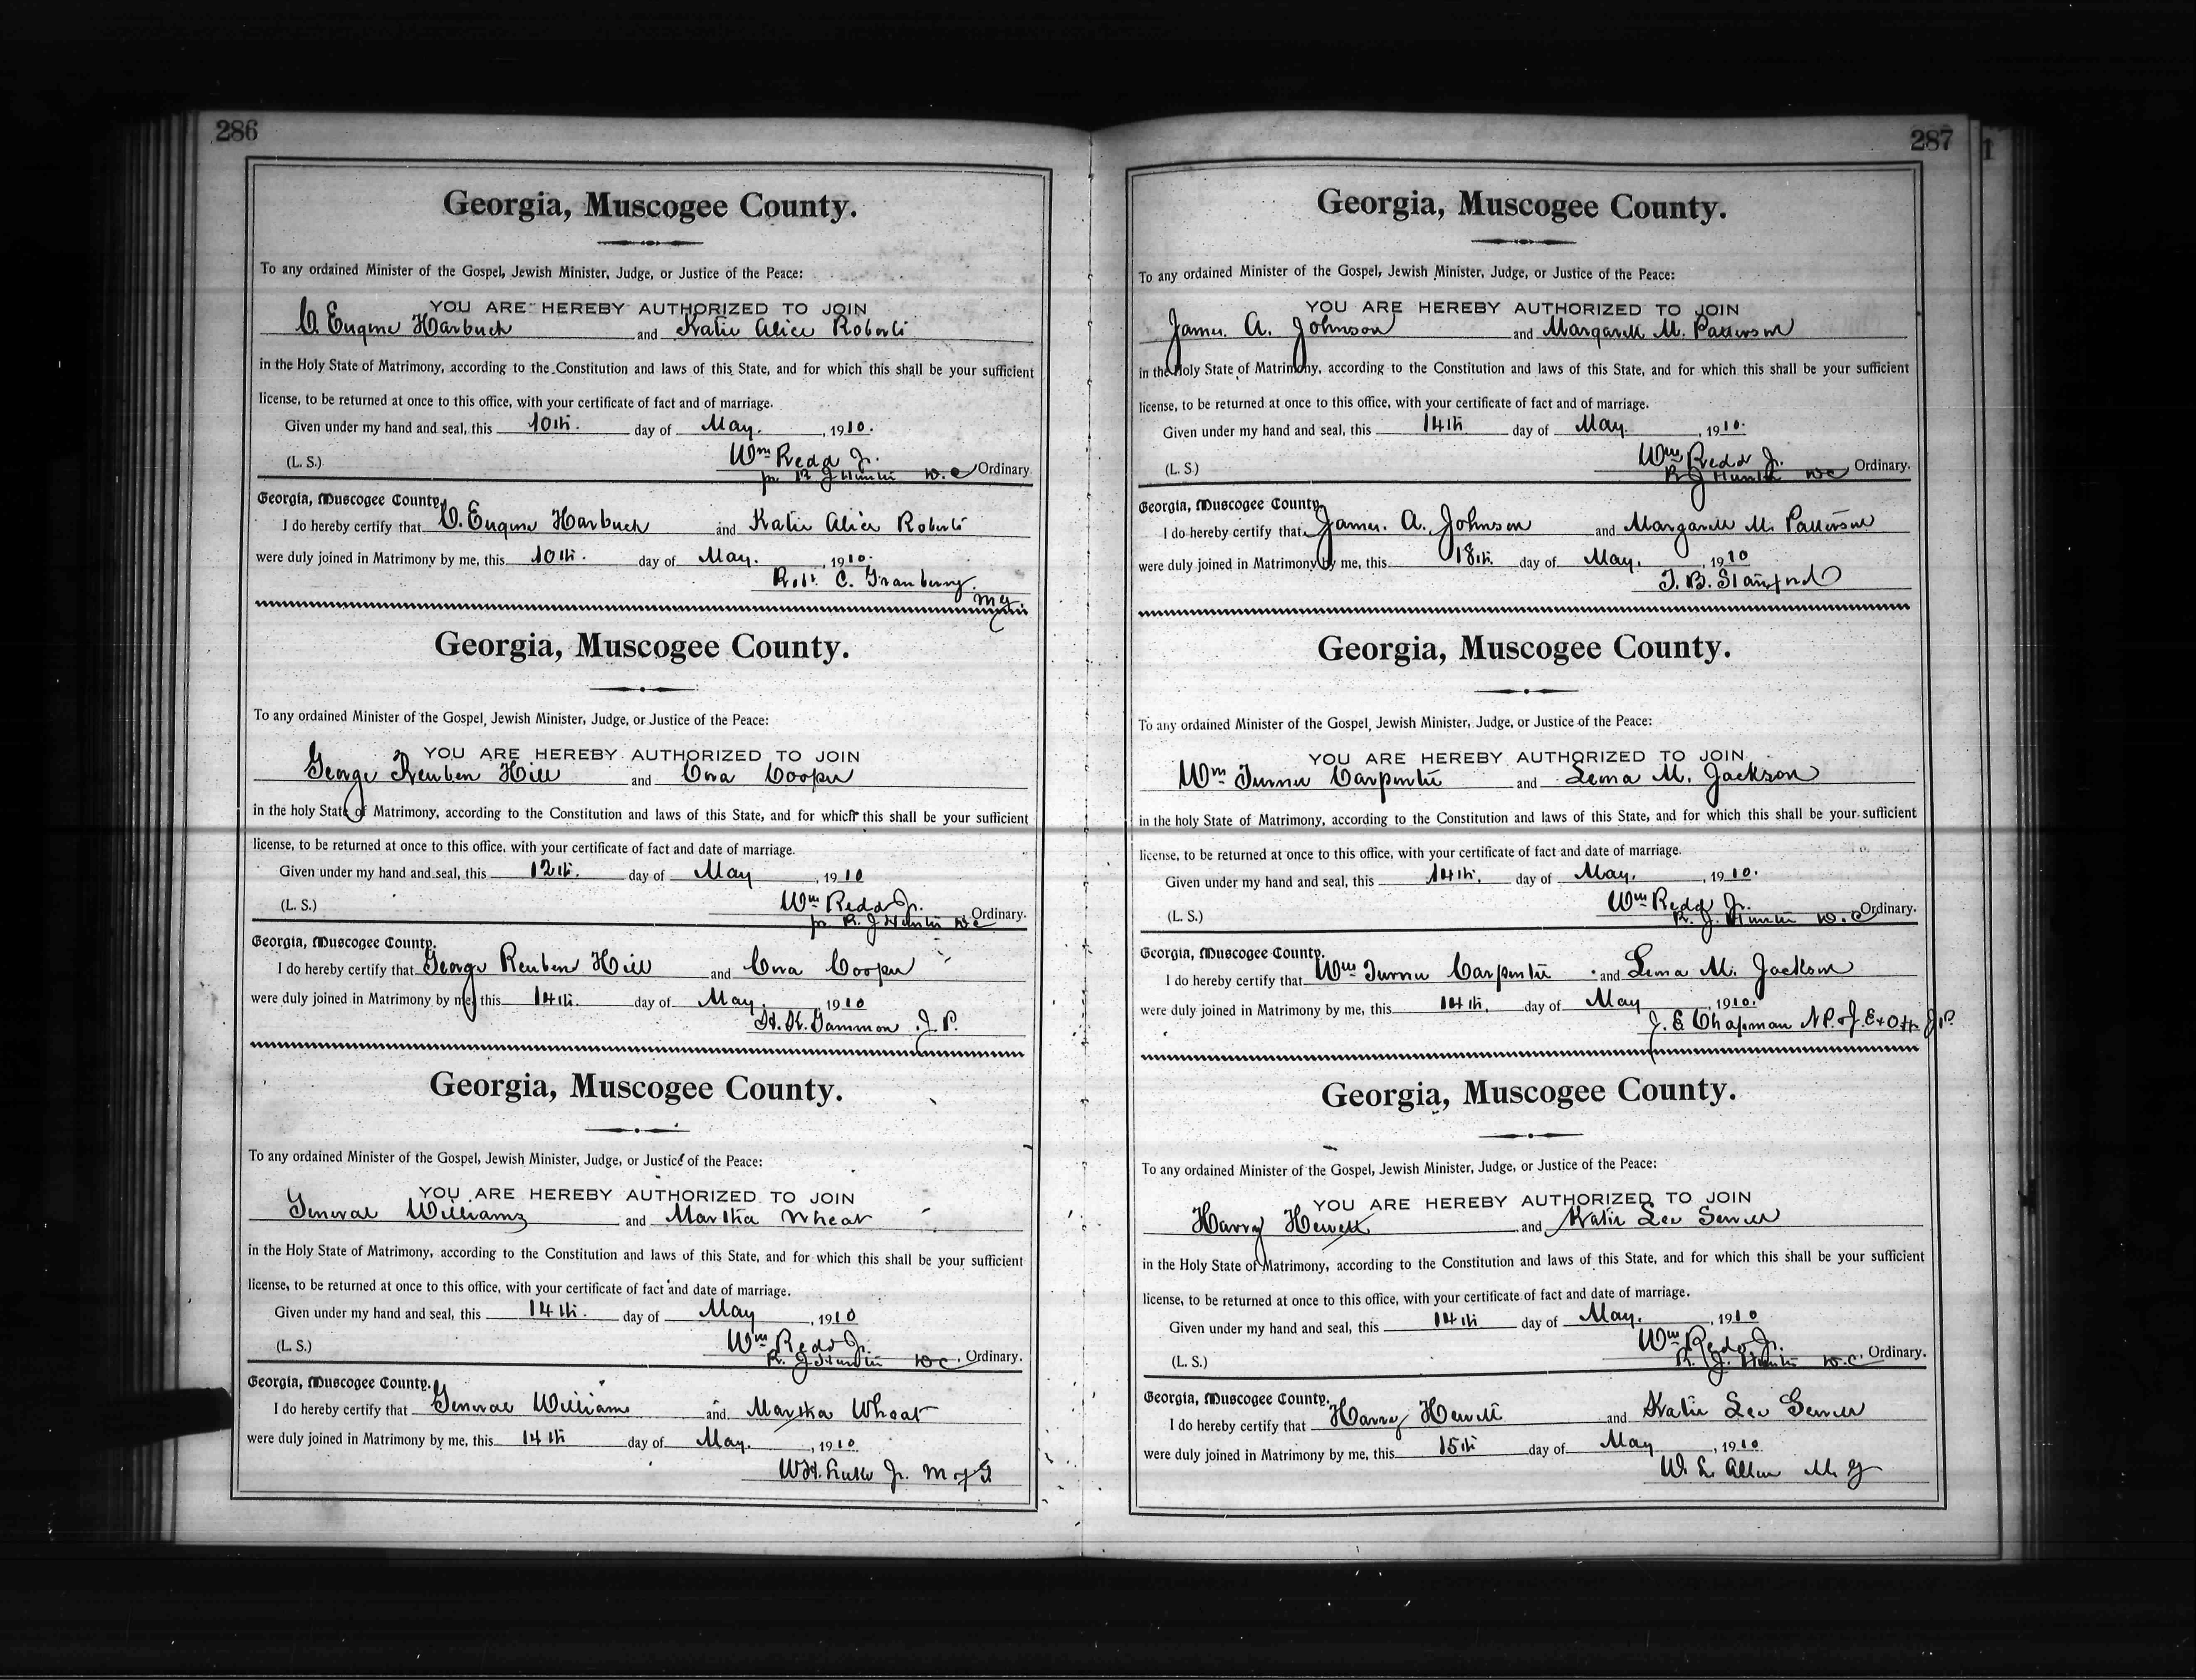 286
Georgia, Muscogee County.
To any ordained Minister of the Gospel, Jewish Minister, Judge, or Justice of the Peace:
YOU ARE HEREBY AUTHORIZED TO JOIN
C. Eugene Harbuck and Katie Alice Roberts
in the Holy State of Matrimony, according to the Constitution and laws of this State, and for which this shall be your sufficient
license, to be returned at once to this office, with your certificate of fact and of marriage.
Given under my hand and seal, this 10th. day of May. , 1910.
Wm Redd Jr.
(L. S.) pr R J Hunter D. C Ordinary.
Georgia, Muscogee County.
I do hereby certify that C. Eugene Harbuck and Katie Alice Roberts
were duly joined in Matrimony by me, this 10th. day of May. , 1910.
Robt. C. Granberry
M G.
Georgia, Muscogee County.
To any ordained Minister of the Gospel, Jewish Minister, Judge, or Justice of the Peace:
YOU ARE HEREBY AUTHORIZED TO JOIN
George Reuben Hill and Cora Cooper
in the holy State of Matrimony, according to the Constitution and laws of this State, and for which this shall be your sufficient
license, to be returned at once to this office, with your certificate of fact and date of marriage.
Given under my hand and seal, this 12th. day of May , 1910
Wm Redd Jr.
(L. S.) pr R. J Hunter DC Ordinary.
Georgia, Muscogee County.
I do hereby certify that George Reuben Hill and Cora Cooper
were duly joined in Matrimony by me, this 14th. day of May. , 1910
Gammon J. P.
Georgia, Muscogee County.
To any ordained Minister of the Gospel, Jewish Minister, Judge, or Justice of the Peace:
YOU ARE HEREBY AUTHORIZED TO JOIN
General Williams and Martha Wheat
in the Holy State of Matrimony, according to the Constitution and laws of this State, and for which this shall be your sufficient
license, to be returned at once to this office, with your certificate of fact and date of marriage.
Given under my hand and seal, this 14th. day of May , 1910
Wm Redd Jr.
(L. S.) R. J Hunter DC. Ordinary.
Georgia, Muscogee County.
I do hereby certify that General Williams and Martha Wheat
were duly joined in Matrimony by me, this 14th day of May. , 1910
W.H. Jr. M of G
287
Georgia, Muscogee County.
To any ordained Minister of the Gospel, Jewish Minister, Judge, or Justice of the Peace:
YOU ARE HEREBY AUTHORIZED TO JOIN
James. A. Johnson and Margarett M. Patterson
in the Holy State of Matrimony, according to the Constitution and laws of this State, and for which this shall be your sufficient
license, to be returned at once to this office, with your certificate of fact and of marriage.
Given under my hand and seal, this 14th day of May. , 1910.
Wm Redd Jr.
(L. S.) R J Hunter DC Ordinary.
Georgia, Muscogee County.
I do hereby certify that James. A. Johnson and Margarett M. Patterson
were duly joined in Matrimony by me, this 18th. day of May. , 1910
T. B. Stanford
Georgia, Muscogee County.
To any ordained Minister of the Gospel, Jewish Minister, Judge, or Justice of the Peace:
YOU ARE HEREBY AUTHORIZED TO JOIN
Wm Turner Carpenter and Lena M. Jackson
in the holy State of Matrimony, according to the Constitution and laws of this State, and for which this shall be your sufficient
license, to be returned at once to this office, with your certificate of fact and date of marriage.
Given under my hand and seal, this 14th. day of May. , 1910.
Wm Redd Jr.
(L. S.) R. J. Hunter D. C Ordinary.
Georgia, Muscogee County.
I do hereby certify that Wm Turner Carpenter and Lena M. Jackson
were duly joined in Matrimony by me, this 14th. day of May , 1910.
J. E Chapman N.P. & J. Ex Off J.P.
Georgia, Muscogee County.
To any ordained Minister of the Gospel, Jewish Minister, Judge, or Justice of the Peace:
YOU ARE HEREBY AUTHORIZED TO JOIN
Harry Hewett and Katie Lee
in the Holy State of Matrimony, according to the Constitution and laws of this State, and for which this shall be your sufficient
license, to be returned at once to this office, with your certificate of fact and date of marriage.
Given under my hand and seal, this 14th day of May. , 1910
Wm Redd Jr.
(L. S.) R. J. Hunter D.C. Ordinary.
Georgia, Muscogee County.
I do hereby certify that Harry Hewett and Katie Lee
were duly joined in Matrimony by me, this 15th day of May , 1910
W. L. Allen M. G